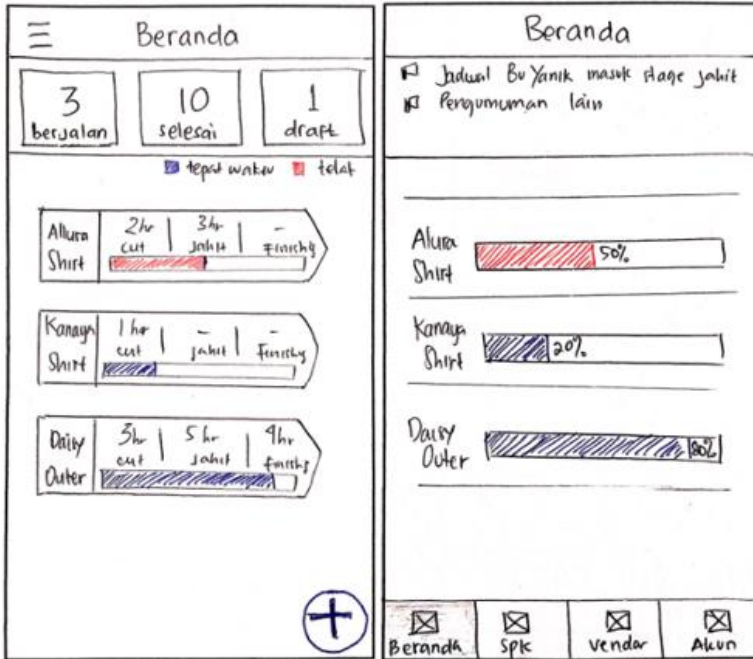 Beranda
3
berjalan
10
selesai
1
draft
tepat waktu
telat
Allura
Shirt
2hr
cut
3hr
Jahit
-
Finishg
Kanaya
Shirt
1hr
cut
-
jahit
-
Finishg
Daisy
Outer
3hr
cut
5hr
Jahit
4hr
finishg
+
Beranda
Jadwal Bu Yanik masuk stage jahit
Pengumuman lain
Alura
Shirt
50%
Kanaya
Shirt
20%
Daisy
Outer
80%
Beranda
Spk
Vendor
Akun